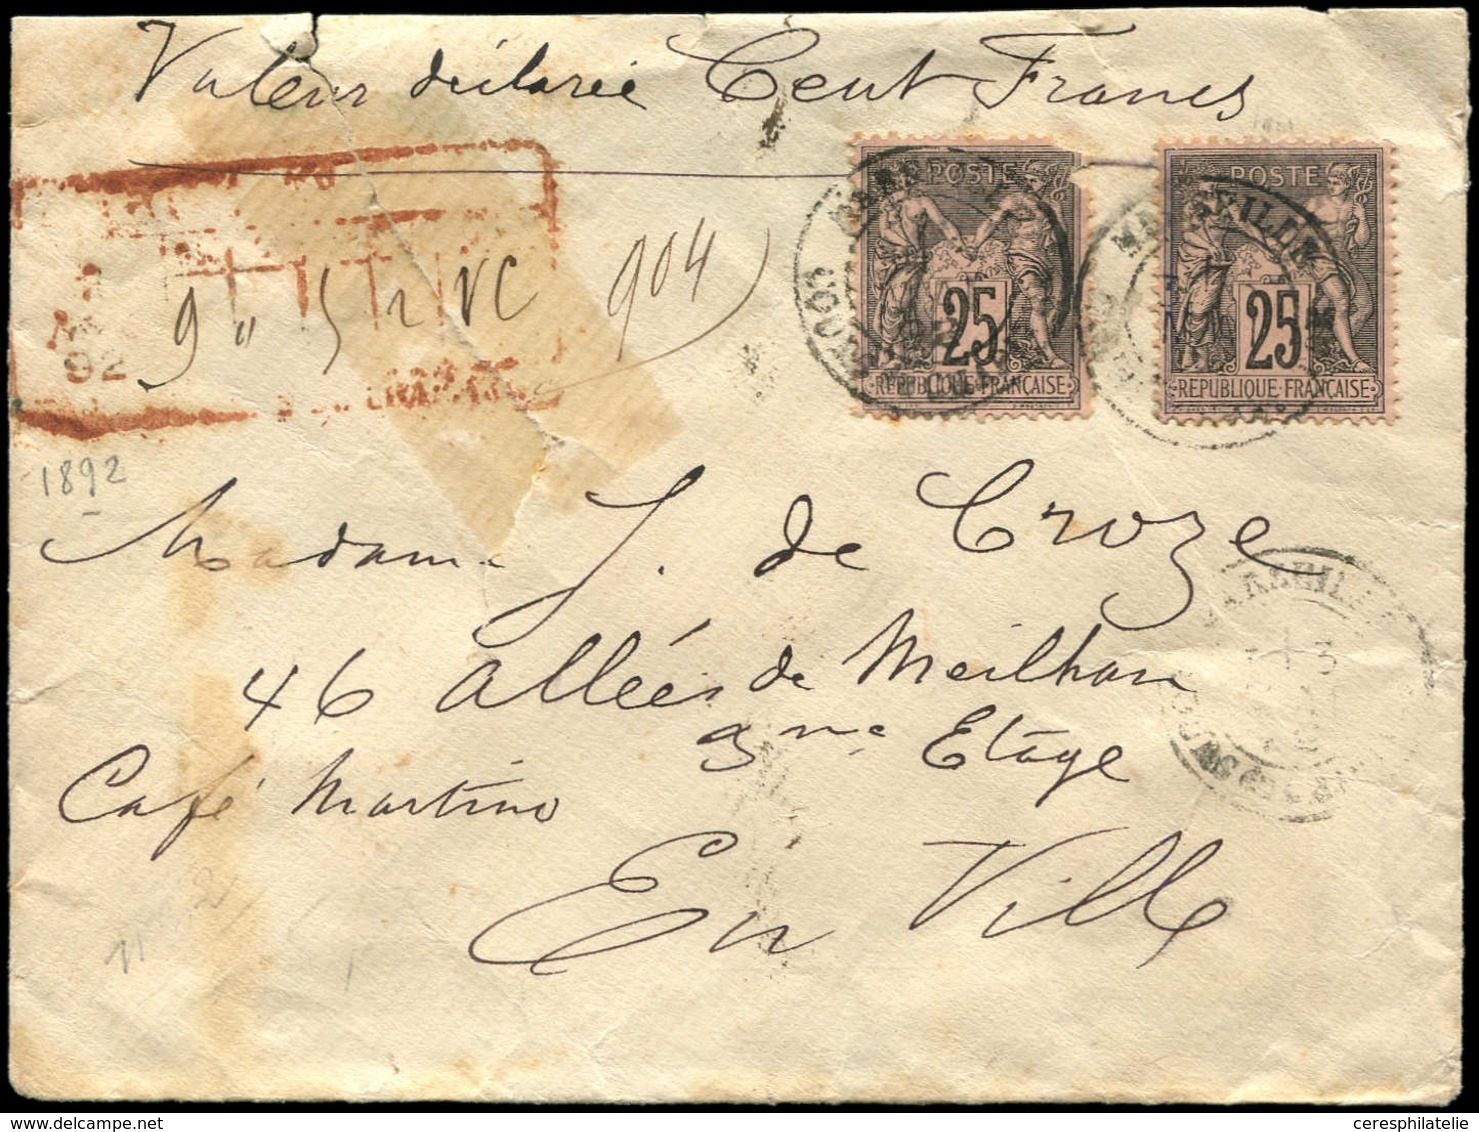 Valeur déclarée Cent Francs
POSTE
POSTE
25
25
REPUBLIQUE FRANÇAISE
REPUBLIQUE FRANÇAISE
MARSEILLE
92
VC
904
1892
Madame J. de Croze
46 Allées de Meilhan
3me Etage
Café Martino
En Ville
MARSEILLE
ceresphilatelie